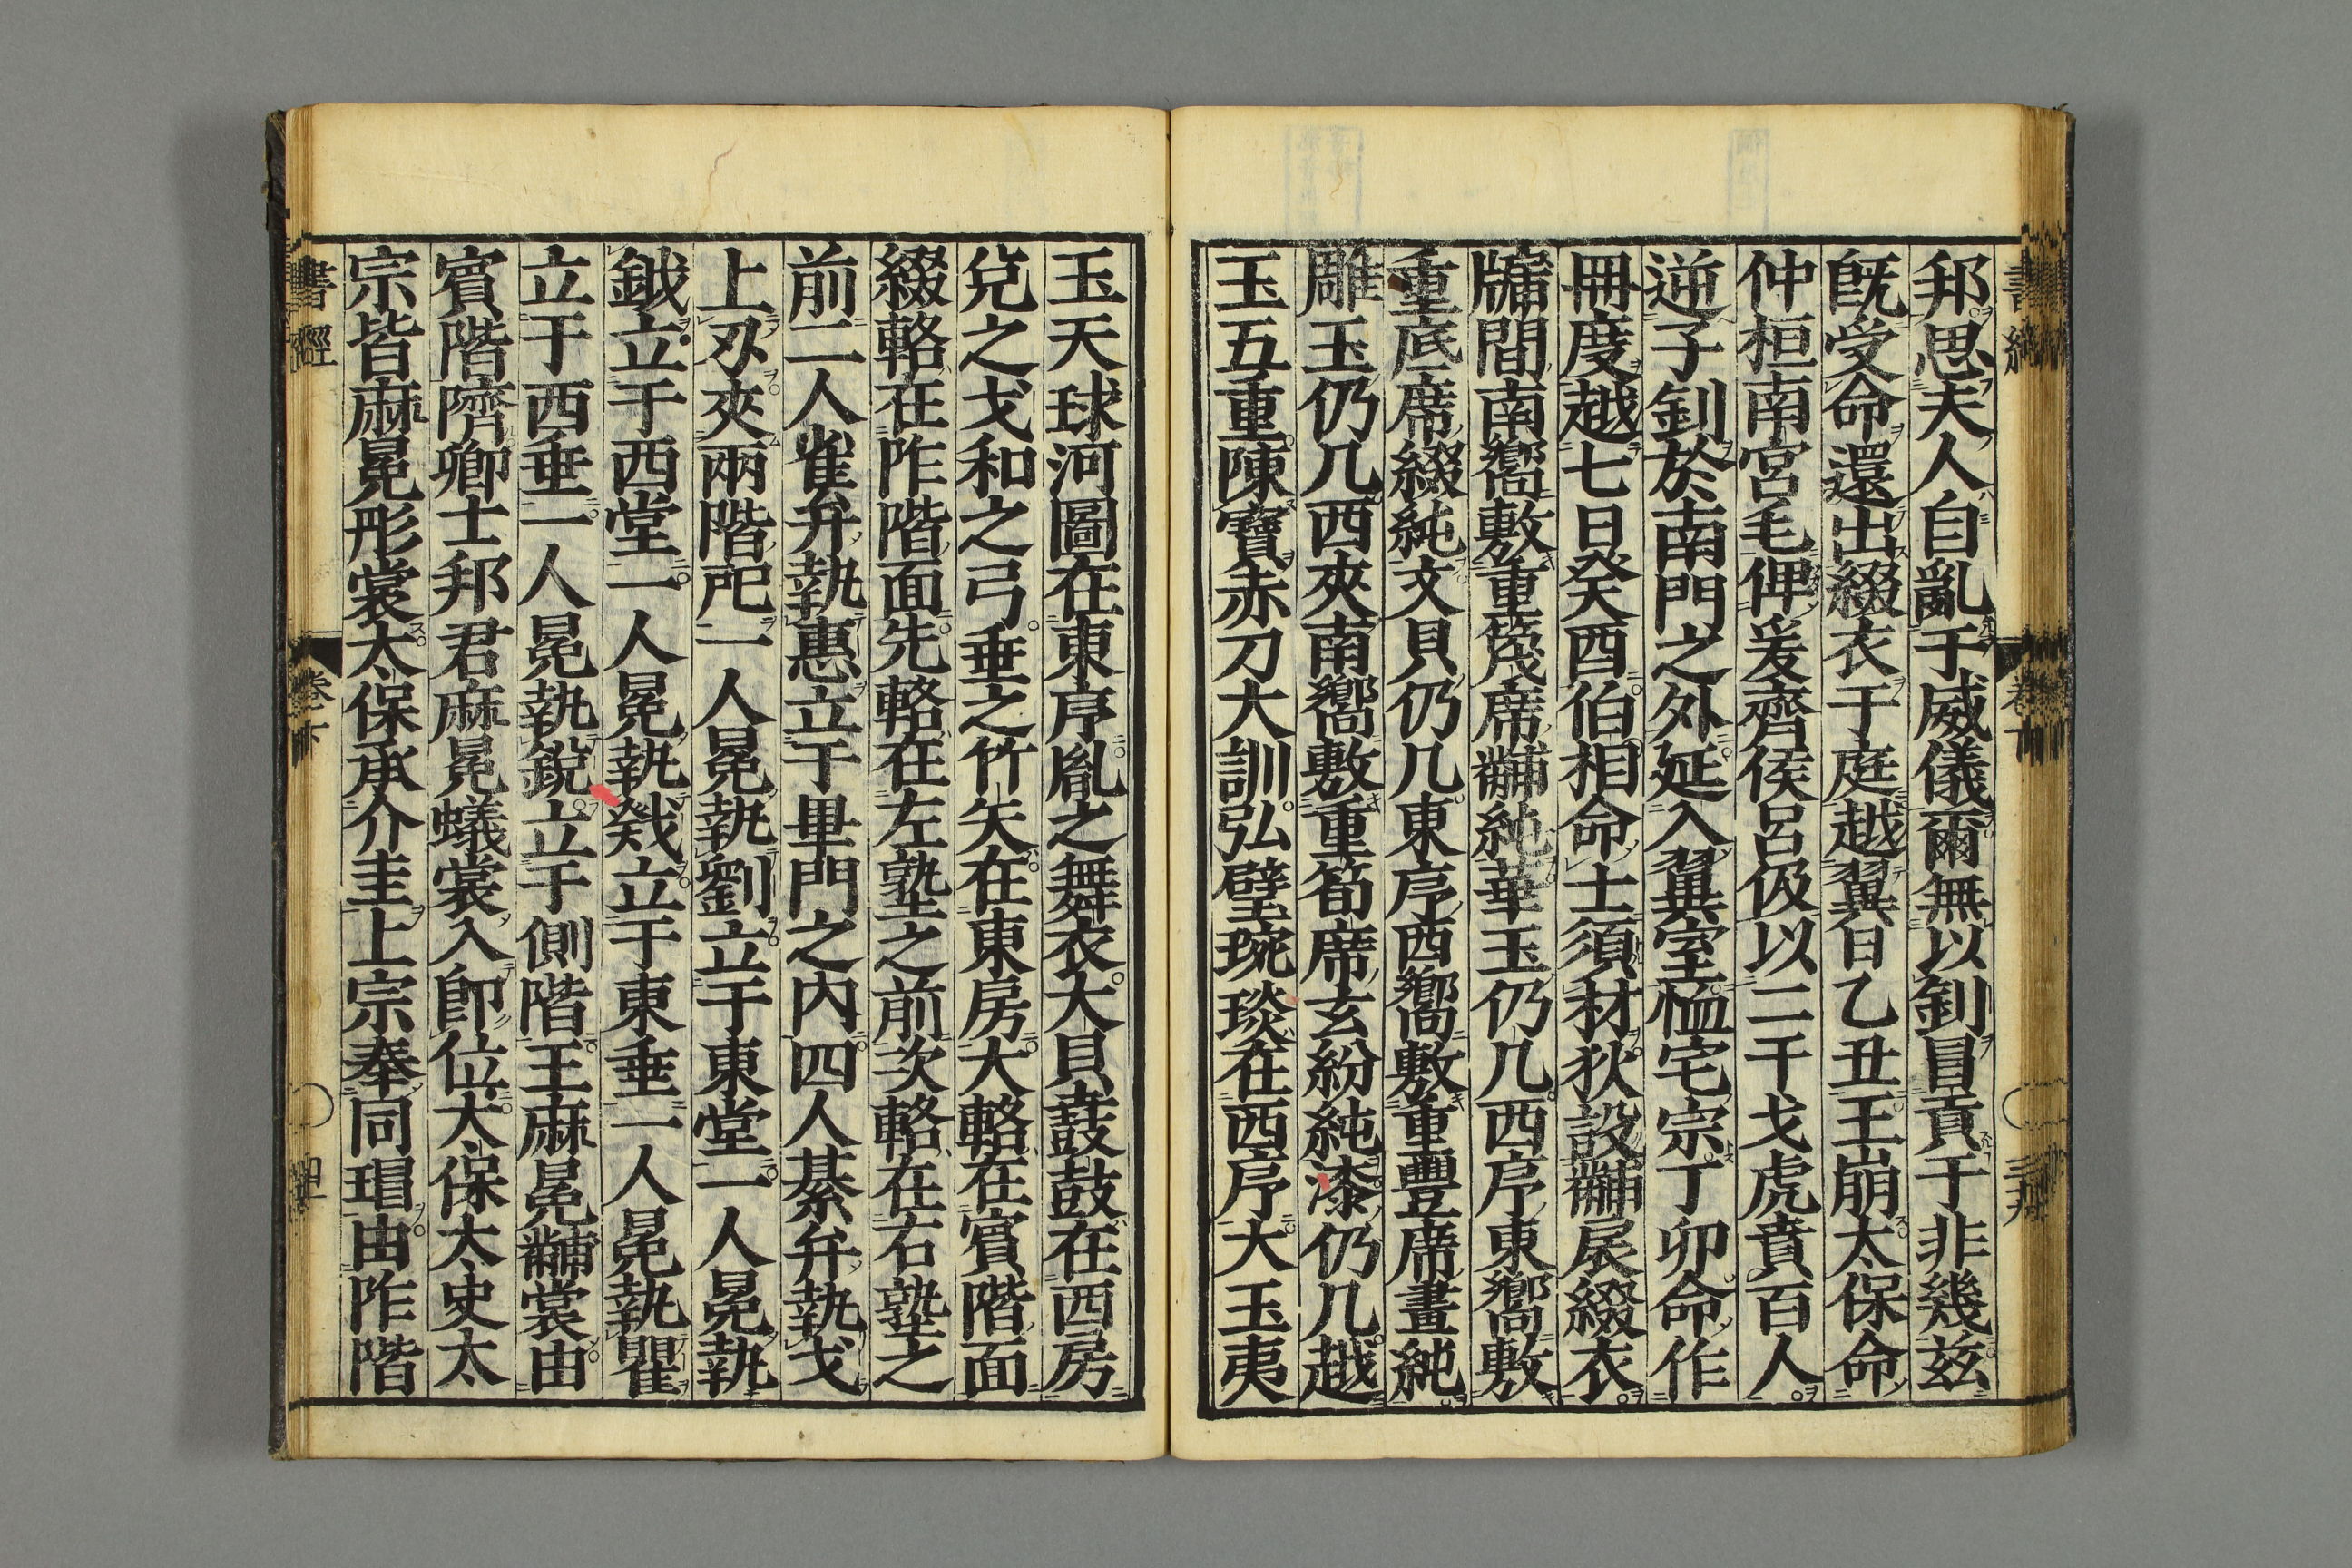 邦思夫人自亂于威儀爾無以釗冒貢于非幾茲
旣受命還出綴衣于庭越翼日乙丑王崩太保命
仲桓南宮毛俾爰齊侯呂伋以二干戈虎賁百人
逆子釗於南門之外延入翼室恤宅宗丁卯命作
冊度越七日癸酉伯相命士須材狄設黼扆綴衣
牖間南嚮敷重篾席黼純華玉仍几西序東嚮敷
重底席綴純文貝仍几東序西嚮敷重豐席畫純
雕玉仍几西夾南嚮敷重筍席玄紛純漆仍几越
玉五重陳寶赤刀大訓弘璧琬琰在西序大玉夷
玉天球河圖在東序胤之舞衣大貝鼖鼓在西房
兌之戈和之弓垂之竹矢在東房大輅在賓階面
綴輅在阼階面先輅在左塾之前次輅在右塾之
前二人雀弁執惠立于畢門之內四人綦弁執戈
上刃夾兩階戺一人冕執劉立于東堂一人冕執
鉞立于西堂一人冕執戣立于東垂一人冕執瞿
立于西垂一人冕執銳立于側階王麻冕黼裳由
賓階隮卿士邦君麻冕蟻裳入卽位太保太史太
宗皆麻冕彤裳太保承介圭上宗奉同瑁由阼階
書經
卷下